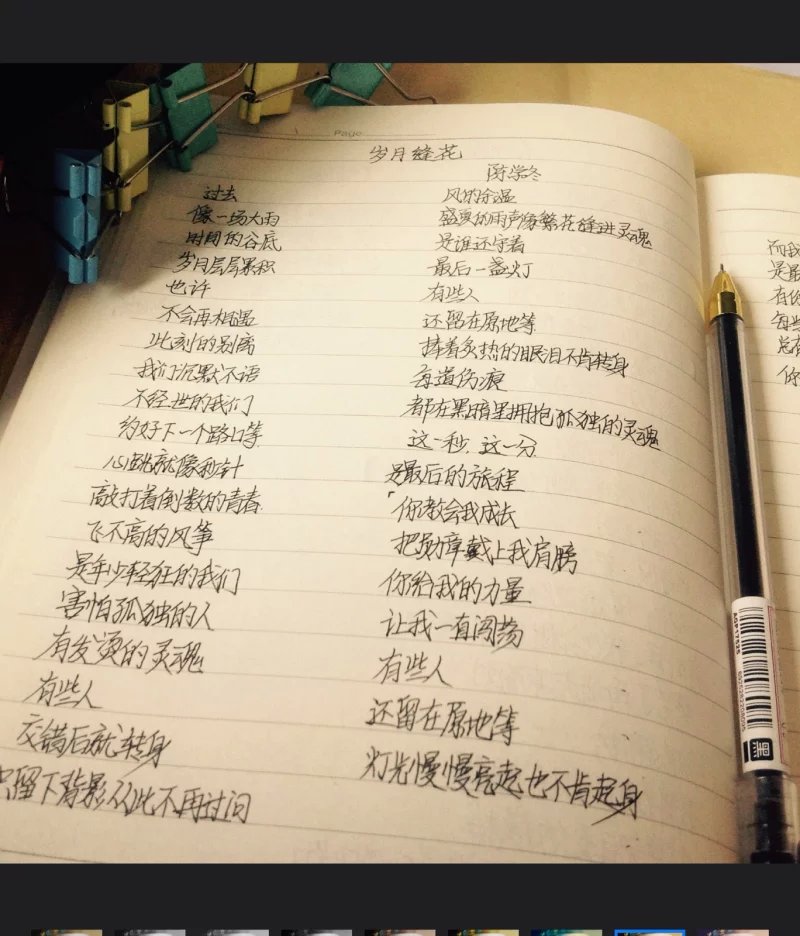 Page
岁月缝花
陈学冬
过去
像一场大雨
时间的谷底
岁月层层累积
也许
不会再相遇
此刻的别离
我们沉默不语
不经世的我们
约好下一个路口等
心跳就像秒针
敲打着倒数的青春
飞不高的风筝
是年少轻狂的我们
害怕孤独的人
有发烫的灵魂
有些人
交错后就转身
只留下背影从此不再过问
风的余温
盛夏的雨声像繁花缝进灵魂
是谁还守着
最后一盏灯
有些人
还留在原地等
捧着炙热的眼泪不肯转身
每道伤痕
都在黑暗里拥抱孤独的灵魂
这一秒.这一分
是最后的旅程
「你教会我成长
把勋章戴上我肩膀
你给我的力量
让我一直闯荡
有些人
还留在原地等
灯光慢慢亮起也不肯起身
而我
是最
有你
每当
总有
你
黑